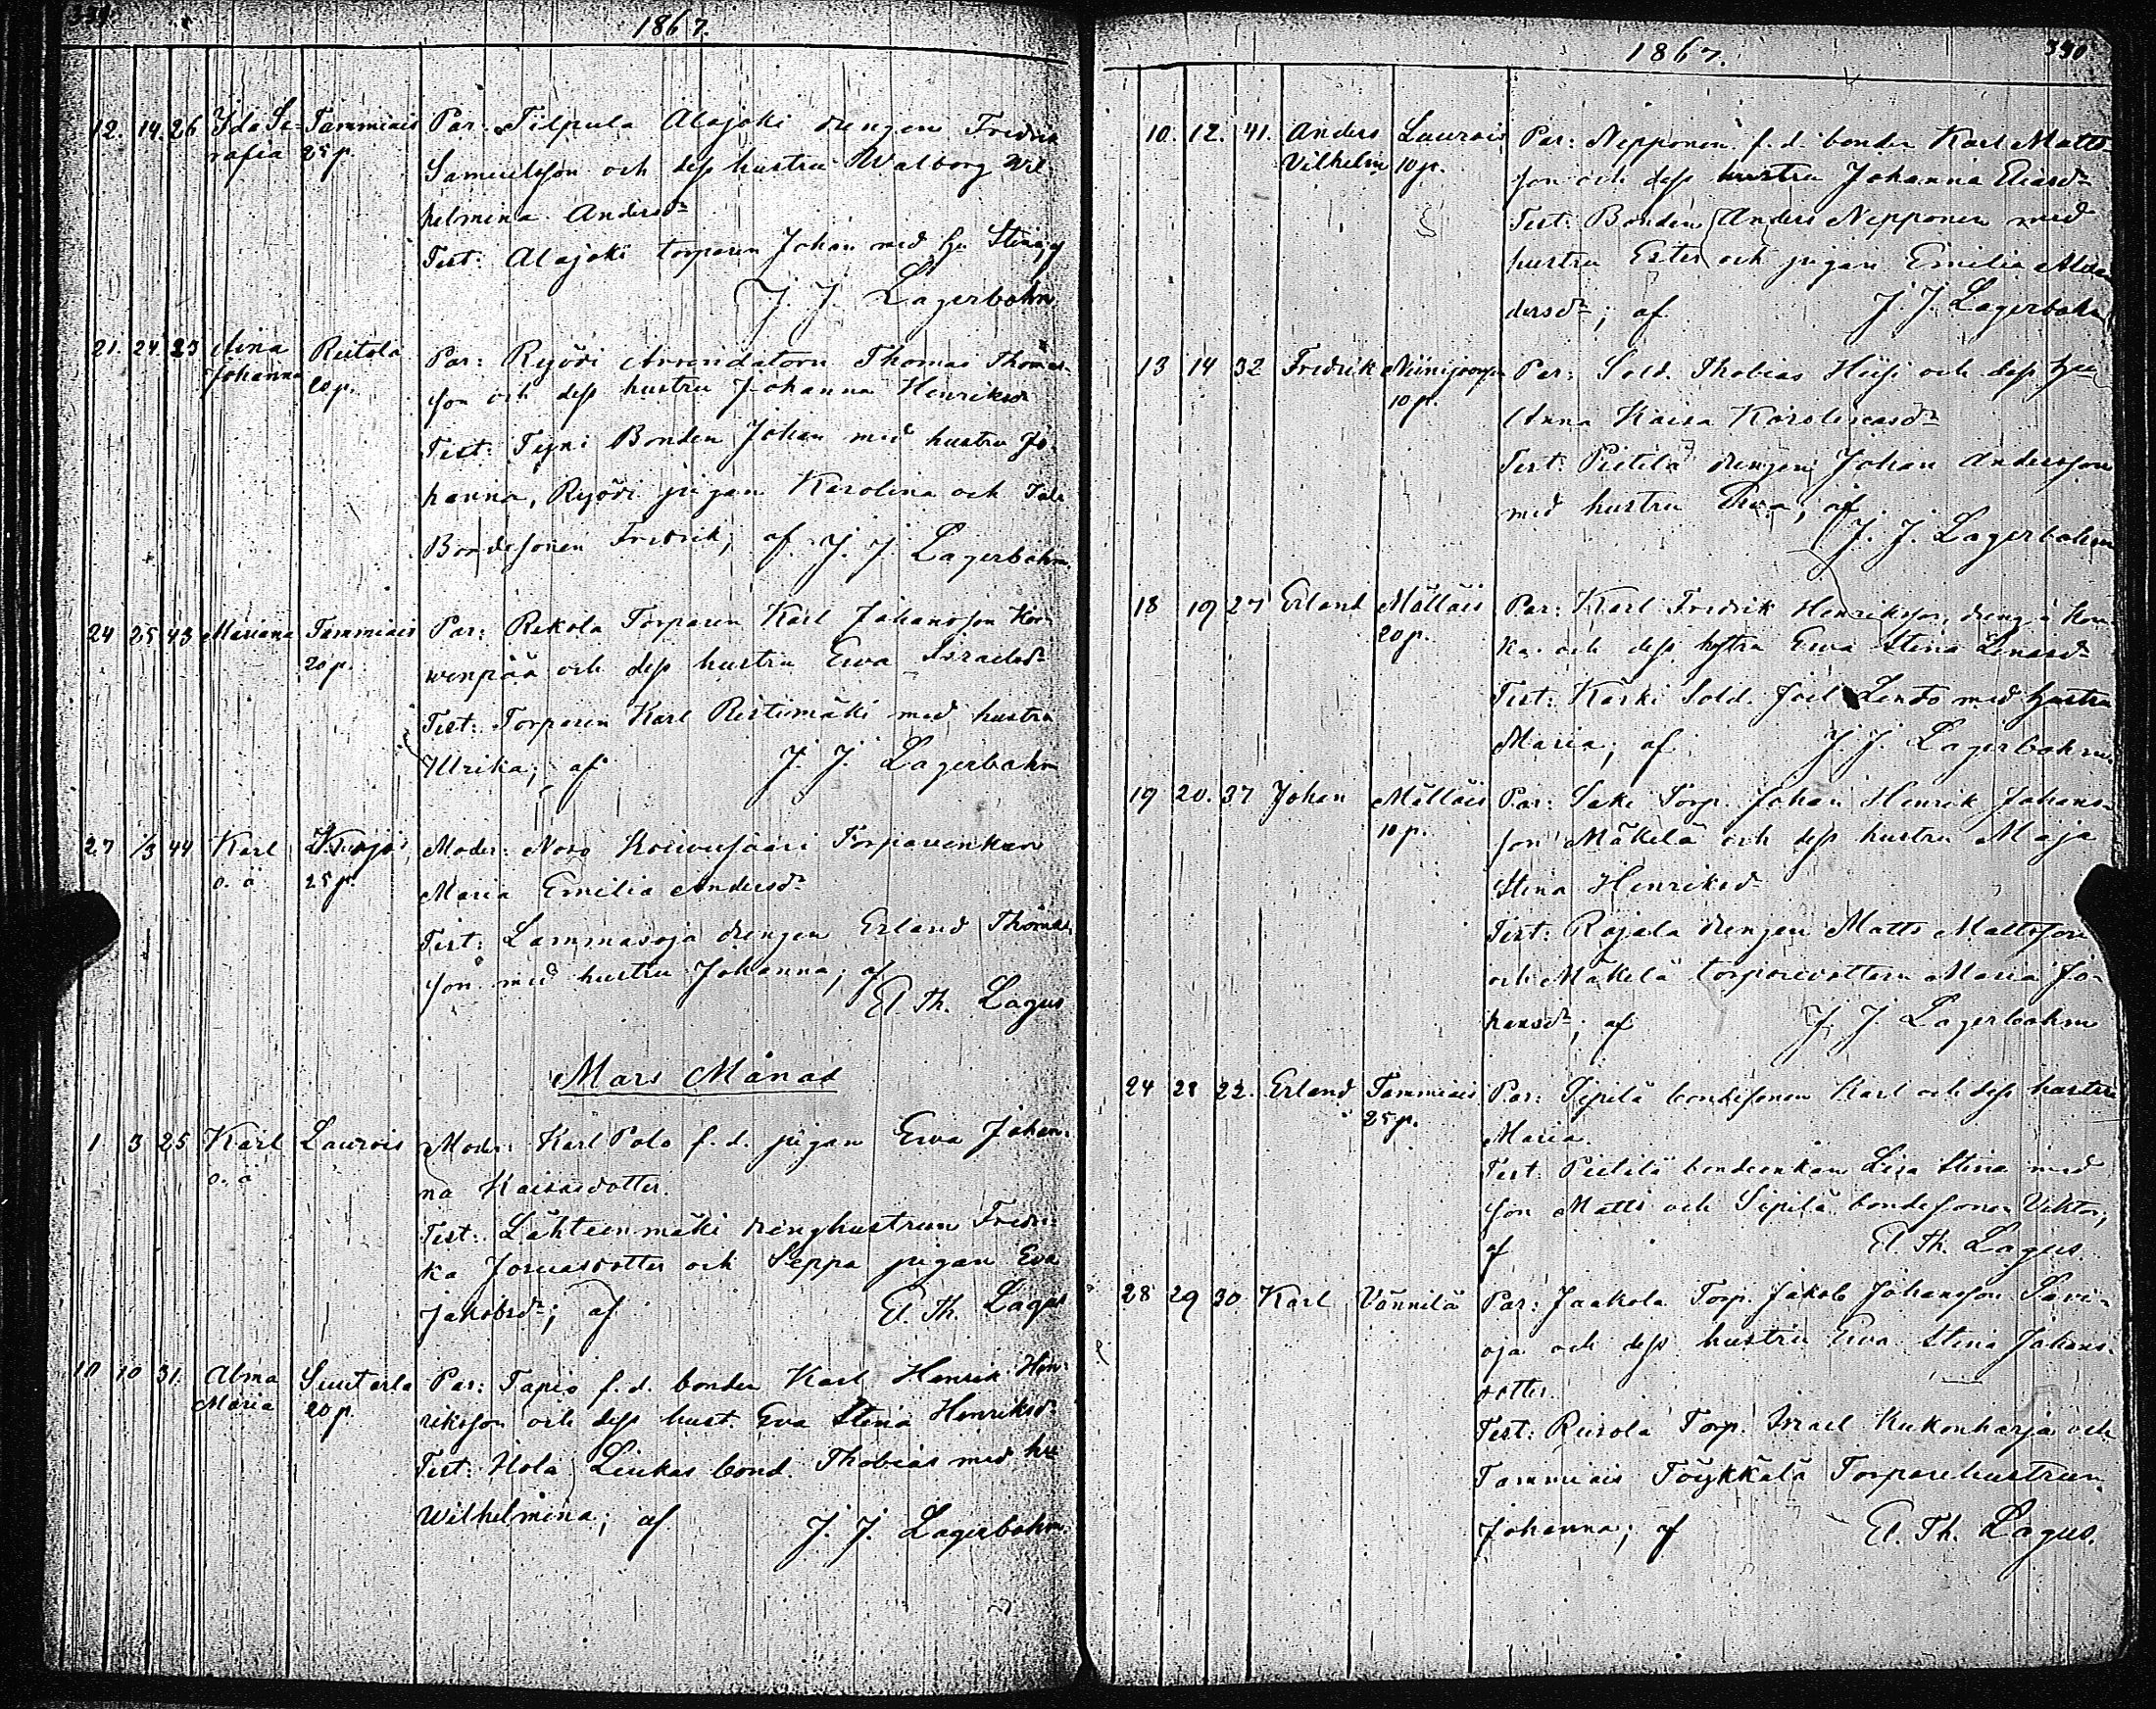 1867.
12. 14. 26 Ida Se- Tammiais Par: Tilpula Alajoki drengen Fredrik
rafia 25 p. Samuelsson och dess hustru Walborg Wil
helmina Andersdr
Test: Alajoki torparen Johan med hu Stina; af
J. J. Lagerbohm
21. 24 23 Aina Reitola Par: Ryödi Arrendatorn Thomas Thomas-
Johanna 20 p. son och dess hustru Johanna Henriksdr
Test: Tyni Bonden Johan med hustru Jo-
hanna, Ryödi pigan Karolina och
Bondesonen Fredrik; af J. J. Lagerbohm.
24 25 43 Mariana Tammiais Par: Rekola Torparen Karl Johansson Kor-
20 p. wenpää och dess hustru Ewa Israelsdr
Test: Torparen Karl Ristimäki med hustru
Ulrika; af J. J. Lagerbohm
27 1/3 44 Karl Moder: Noro Koiwusaari Torparenkan
o. ä 25 p. Maria Emilia Andersdr
Test: Lammasoja drengen Erland Thomas-
son med hustru Johanna; af
El. Th. Lagus
Mars Månad
1 3 25 Karl Laurois Moder: Karl Polo f. d. pigan Ewa Johan-
o. ä na Kaisasdotter.
Test: Lähteenmäki drenghustrun Fredri-
ka Josuasdotter och Seppa pigan Eva
Jakobsdr; af El. Th. Lagus
10 10 31. Alma Suuterla Par: Tapio f. d. bonden Karl Henrik Hen-
Maria 20 p. riksson och dess hust. Eva Stina Henriksdr
Test: Hola Liukas bond. Thobias med hu
Wilhelmina; af J. J. Lagerbohm.
1867. 340
10. 12. 41. Anders Laurois Par: Nepponen f. d. bonden Karl Matts-
Vilhelm 10 p. son och dess hustru Johanna Eliasdr
Test: Bonden Anders Nepponen med
hustru Ester och pigan Emilia
dersdr; af J. J. Lagerbohm
13 14 32 Fredrik Niinijoensuu Par: Sold. Thobias Hiisi och dess hu
10 p. Anna Kaisa Karolinasdr
Test: Pietilä drengen Johan Andersson
med hustru Ewa; af
J. J. Lagerbohm
18 19 27 Erland Mälläis Par: Karl Fredrik Henriksson, dreng å
20 p. ka och dess hustru Ewa Stina Lenasdr
Test: Karki Sold. Joel Lento med hustru
Maria; af J. J. Lagerbohm.
19 20. 37 Johan Mälläis Par: Saki Torp. Johan Henrik Johans-
10 p. son Mäkelä och dess hustru Maja
Stina Henriksdr
Test: Rajala drengen Matts Mattsson
och Mäkelä torparedottern Maria Jo-
hansdr; af J. J. Lagerbohm
24 28 22. Erland Tammiais Par: Sipilä bondesonen Karl och dess hustru
25 p. Maria.
Test. Pietilä bondeenkan Lisa Stina med
son Matts och Sipilä bondesonen Viktor;
af El. Th. Lagus
28 29 30 Karl Vännilä Par: Jaakola Torp. Jakob Johansson Savi-
oja och dess hustru Ewa Stina Johans-
dotter
Test: Torp. Israel Kukonharja och
Tammiais Töykkälä Torparehustrun
Johanna; af El. Th. Lagus.